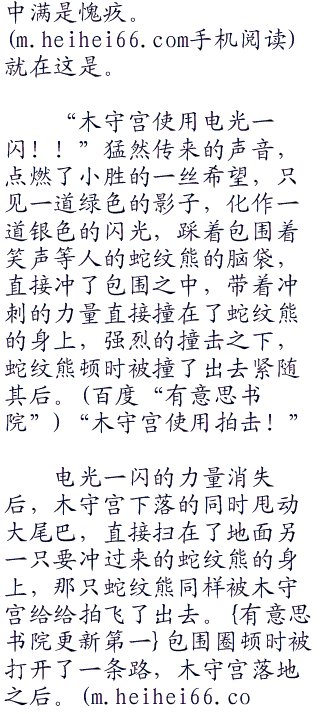 中满是愧疚。
(m.heihei66.com手机阅读)
就在这是。
“木守宫使用电光一
闪！！”猛然传来的声音，
点燃了小胜的一丝希望，只
见一道绿色的影子，化作一
道银色的闪光，踩着包围着
笑声等人的蛇纹熊的脑袋，
直接冲了包围之中，带着冲
刺的力量直接撞在了蛇纹熊
的身上，强烈的撞击之下，
蛇纹熊顿时被撞了出去紧随
其后。(百度“有意思书
院”)“木守宫使用拍击！”
电光一闪的力量消失
后，木守宫下落的同时甩动
大尾巴，直接扫在了地面另
一只要冲过来的蛇纹熊的身
上，那只蛇纹熊同样被木守
宫给给拍飞了出去。{有意思
书院更新第一}包围圈顿时被
打开了一条路，木守宫落地
之后。(m.heihei66.co